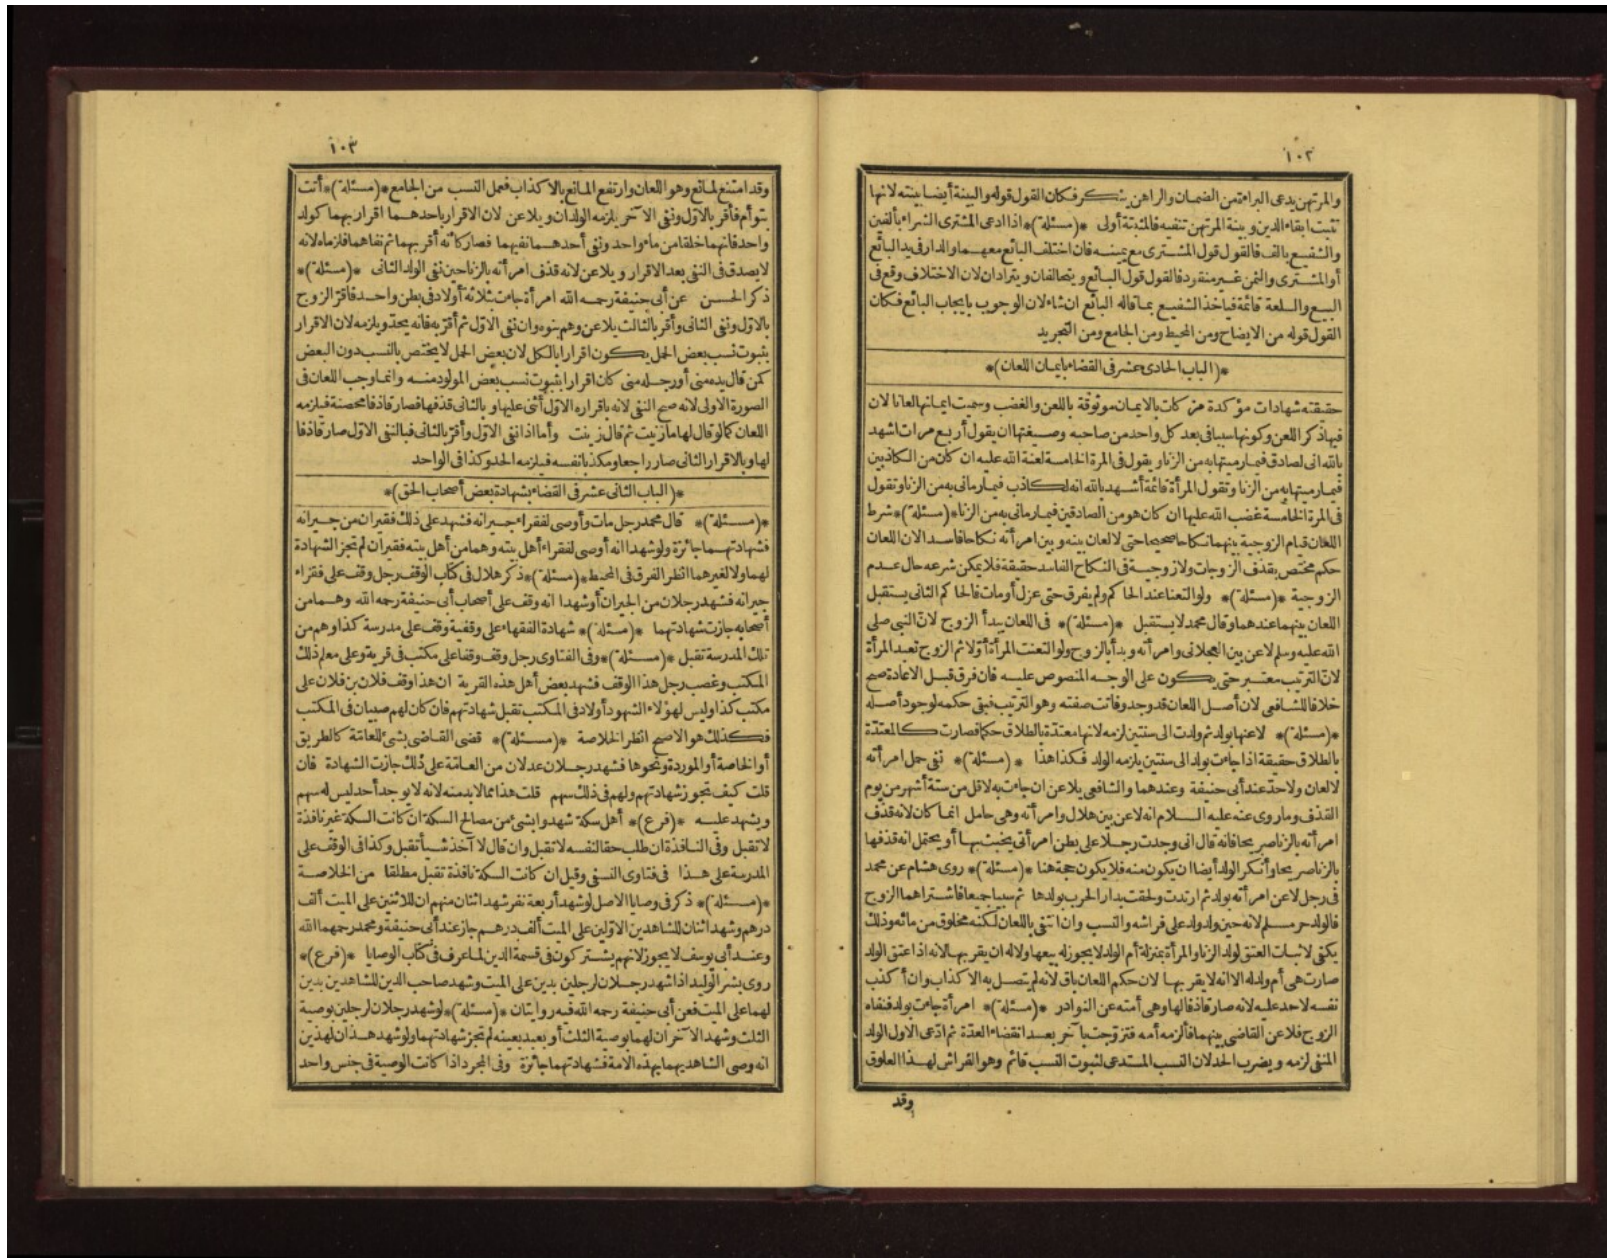 ١٠٢
والمرتهن يدعى البراءة من الضمان والراهن ينكر فكان القول قوله والبينة أيضا بينته لانها
تثبت ايفاء الدين وبينة المرتهن تنفيه فالمثبتة أولى *(مسئلة)* اذا ادعى المشترى الشراء بألفين
والشفيع بالف فالقول قول المشترى مع يمينه فان اختلف البائع معهما والدار فى يد البائع
أو المشترى والثمن غير منقود فالقول قول البائع ويتحالفان ويترادان لان الاختلاف وقع فى
البيع والسلعة قائمة فيأخذ الشفيع بما قاله البائع ان شاء لان الوجوب بايجاب البائع فكان
القول قوله من الايضاح ومن المحيط ومن الجامع ومن التجريد
*(الباب الحادى عشر فى القضاء بايمان اللعان)*
حقيقته شهادات مؤكدة مزكات بالايمان موثوقة باللعن والغضب وسميت ايمانها لعانا لان
فيها ذكر اللعن وكونها سببا فى بعد كل واحد من صاحبه وصيغتها ان يقول أربع مرات اشهد
بالله انى لصادق فيما رميتها به من الزنا ويقول فى المرة الخامسة لعنة الله عليه ان كان من الكاذبين
فيما رميتها به من الزنا وتقول المرأة قائمة أشهد بالله انه لكاذب فيما رمانى به من الزنا وتقول
فى المرة الخامسة غضب الله عليها ان كان هو من الصادقين فيما رمانى به من الزنا *(مسئلة)* شرط
اللعان قيام الزوجية بينهما نكاحا صحيحا حتى لا لعان بينه وبين امرأته نكاحا فاسدا لان اللعان
حكم مختص بقذف الزوجات ولا زوجية فى النكاح الفاسد حقيقة فلا يمكن شرعه حال عدم
الزوجية *(مسئلة)* ولو التعنا عند الحاكم ولم يفرق حتى عزل أو مات فالحاكم الثانى يستقبل
اللعان بينهما عندهما وقال محمد لا يستقبل *(مسئلة)* فى اللعان يبدأ الزوج لانّ النبى صلى
الله عليه وسلم لاعن بين العجلانى وامرأته وبدأ بالزوج ولو التعنت المرأة أوّلا ثم الزوج تعيد المرأة
لانّ الترتيب معتبر حتى يكون على الوجه المنصوص عليه فان فرق قبل الاعادة صح
خلافا للشافعى لان أصل اللعان قد وجد وفاتت صفته وهو الترتيب فبقى حكمه لوجود أصله
*(مسئلة)* لاعنها بولد ثم ولدت الى سنتين لزمه لانها معتدّة بالطلاق حكما فصارت كالمعتدّة
بالطلاق حقيقة اذا جاءت بولد الى سنتين يلزمه الولد فكذا هذا *(مسئلة)* نفى حمل امرأته
لا لعان ولا حدّ عند أبى حنيفة وعندهما والشافعى يلاعن ان جاءت به لاقل من ستة أشهر من يوم
القذف وما روى عنه عليه السلام انه لاعن بين هلال وامرأته وهى حامل انما كان لانه قذف
امرأته بالزنا صريحا فانه قال انى وجدت رجلا على بطن امرأتى يخبث بها أو يحتمل انه قذفها
بالزنا صريحا وأنكر الولد أيضا ان يكون منه فلا يكون حجة هنا *(مسئلة)* روى هشام عن محمد
فى رجل لاعن امرأته بولد ثم ارتدت ولحقت بدار الحرب بولدها ثم سبيا جميعا فاشتراهما الزوج
فالولد حر مسلم لانه حين ولد ولد على فراشه والنسب وان انتفى باللعان لكنه مخلوق من مائه وذلك
يكفى لاثبات العتق لولد الزنا والمرأة بمنزلة أم الولد لا يجوز له بيعها ولا له ان يقربها لانه اذا عتق الولد
صارت هى أم ولد له الا انه لا يقربها لان حكم اللعان باق لانه لم يتصل به الاكذاب وان أكذب
نفسه لا حد عليه لانه صار قاذفا لها وهى أمته عن النوادر *(مسئلة)* امرأة جاءت بولد فنفاه
الزوج فلاعن القاضى بينهما فألزمه أمه فتزوّجت بآخر بعد انقضاء العدّة ثم ادّعى الاول الولد
المنفى لزمه ويضرب الحد لان النسب المستدعى لثبوت النسب قائم وهو الفراش لهذا العلوق
وقد
١٠٣
وقد امتنع لمانع وهو اللعان وارتفع المانع بالاكذاب فعمل النسب من الجامع *(مسئلة)* أتت
بتوأم فأقر بالاوّل ونفى الآخر يلزمه الولدان ويلاعن لان الاقرار باحدهما اقرار بهما كولد
واحد فانهما خلقا من ماء واحد ونفى أحدهما نفيهما فصار كأنه أقر بهما ثم نفاهما فلزماه لانه
لا يصدق فى النفى بعد الاقرار ويلاعن لانه قذف امرأته بالزنا حين نفى الولد الثانى *(مسئلة)*
ذكر الحسن عن أبى حنيفة رحمه الله امرأة جاءت بثلاثة أولاد فى بطن واحد فأقرّ الزوج
بالاوّل ونفى الثانى وأقر بالثالث يلاعن وهم بنوه وان نفى الاوّل ثم أقرّ به فانه يحدّ ويلزمه لان الاقرار
بثبوت نسب بعض الحمل يكون اقرارا بالكل لان بعض الحمل لا يختص بالنسب دون البعض
كمن قال يده منى أو رجله منى كان اقرارا بثبوت نسب بعض المولود منه وانما وجب اللعان فى
الصورة الاولى لانه صح النفى لانه باقراره الاوّل أثنى عليها وبالثانى قذفها فصار قاذفا محصنة فيلزمه
اللعان كما لو قال لها ما زنيت ثم قال زينت وأما اذا نفى الاوّل وأقرّ بالثانى فبالنفى الاوّل صار قاذفا
لها وبالاقرار الثانى صار راجعا ومكذبا نفسه فيلزمه الحد وكذا فى الواحد
*(الباب الثانى عشر فى القضاء بشهادة بعض أصحاب الحق)*
*(مسئلة)* قال محمد رجل مات وأوصى لفقراء جيرانه فشهد على ذلك فقيران من جيرانه
فشهادتهما جائزة ولو شهدا انه أوصى لفقراء أهل بيته وهما من أهل بيته فقيران لم تجز الشهادة
لهما ولا لغيرهما انظر الفرق فى المحيط *(مسئلة)* ذكر هلال فى كتاب الوقف رجل وقف على فقراء
جيرانه فشهد رجلان من الجيران أو شهدا انه وقف على أصحاب أبى حنيفة رحمه الله وهما من
أصحابه جازت شهادتهما *(مسئلة)* شهادة الفقهاء على وقفية وقف على مدرسة كذا وهم من
تلك المدرسة تقبل *(مسئلة)* وفى الفتاوى رجل وقف وقفا على مكتب فى قرية وعلى معلم ذلك
المكتب وغصب رجل هذا الوقف فشهد بعض أهل هذه القرية ان هذا وقف فلان بن فلان على
مكتب كذا وليس لهؤلاء الشهود أولاد فى المكتب تقبل شهادتهم فان كان لهم صبيان فى المكتب
فكذلك هو الاصح انظر الخلاصة *(مسئلة)* قضى القاضى بشئ للعامّة كالطريق
أو الخاصة أو الموردة ونحوها فشهد رجلان عدلان من العامّة على ذلك جازت الشهادة فان
قلت كيف تجوز شهادتهم ولهم فى ذلك سهم قلت هذا مما لا بد منه لانه لا يوجد أحد ليس له سهم
ويشهد عليه *(فرع)* أهل سكة شهدوا بشئ من مصالح السكة ان كانت السكة غير نافذة
لا تقبل وفى النافذة ان طلب حقا لنفسه لا تقبل وان قال لا آخذ شيأ تقبل وكذا فى الوقف على
المدرسة على هذا فى فتاوى النسفى وقيل ان كانت السكة نافذة تقبل مطلقا من الخلاصة
*(مسئلة)* ذكر فى وصايا الاصل لو شهد أربعة نفر شهد اثنان منهم ان للاثنين على الميت ألف
درهم وشهد اثنان للشاهدين الاوّلين على الميت ألف درهم جاز عند أبى حنيفة ومحمد رحمهما الله
وعند أبى يوسف لا يجوز لانهم يشتركون فى قسمة الدين لما عرف فى كتاب الوصايا *(فرع)*
روى بشر الوليد اذا شهد رجلان لرجلين بدين على الميت وشهد صاحب الدين للشاهدين بدين
لهما على الميت فعن أبى حنيفة رحمه الله فيه روايتان *(مسئلة)* لو شهد رجلان لرجلين بوصية
الثلث وشهد الآخران لهما بوصية الثلث أو بعبد بعينه لم تجز شهادتهما ولو شهد هذان لهذين
انه وصى الشاهديهما بهذه الامة فشهادتهما جائزة وفى المجرد اذا كانت الوصية فى جنس واحد